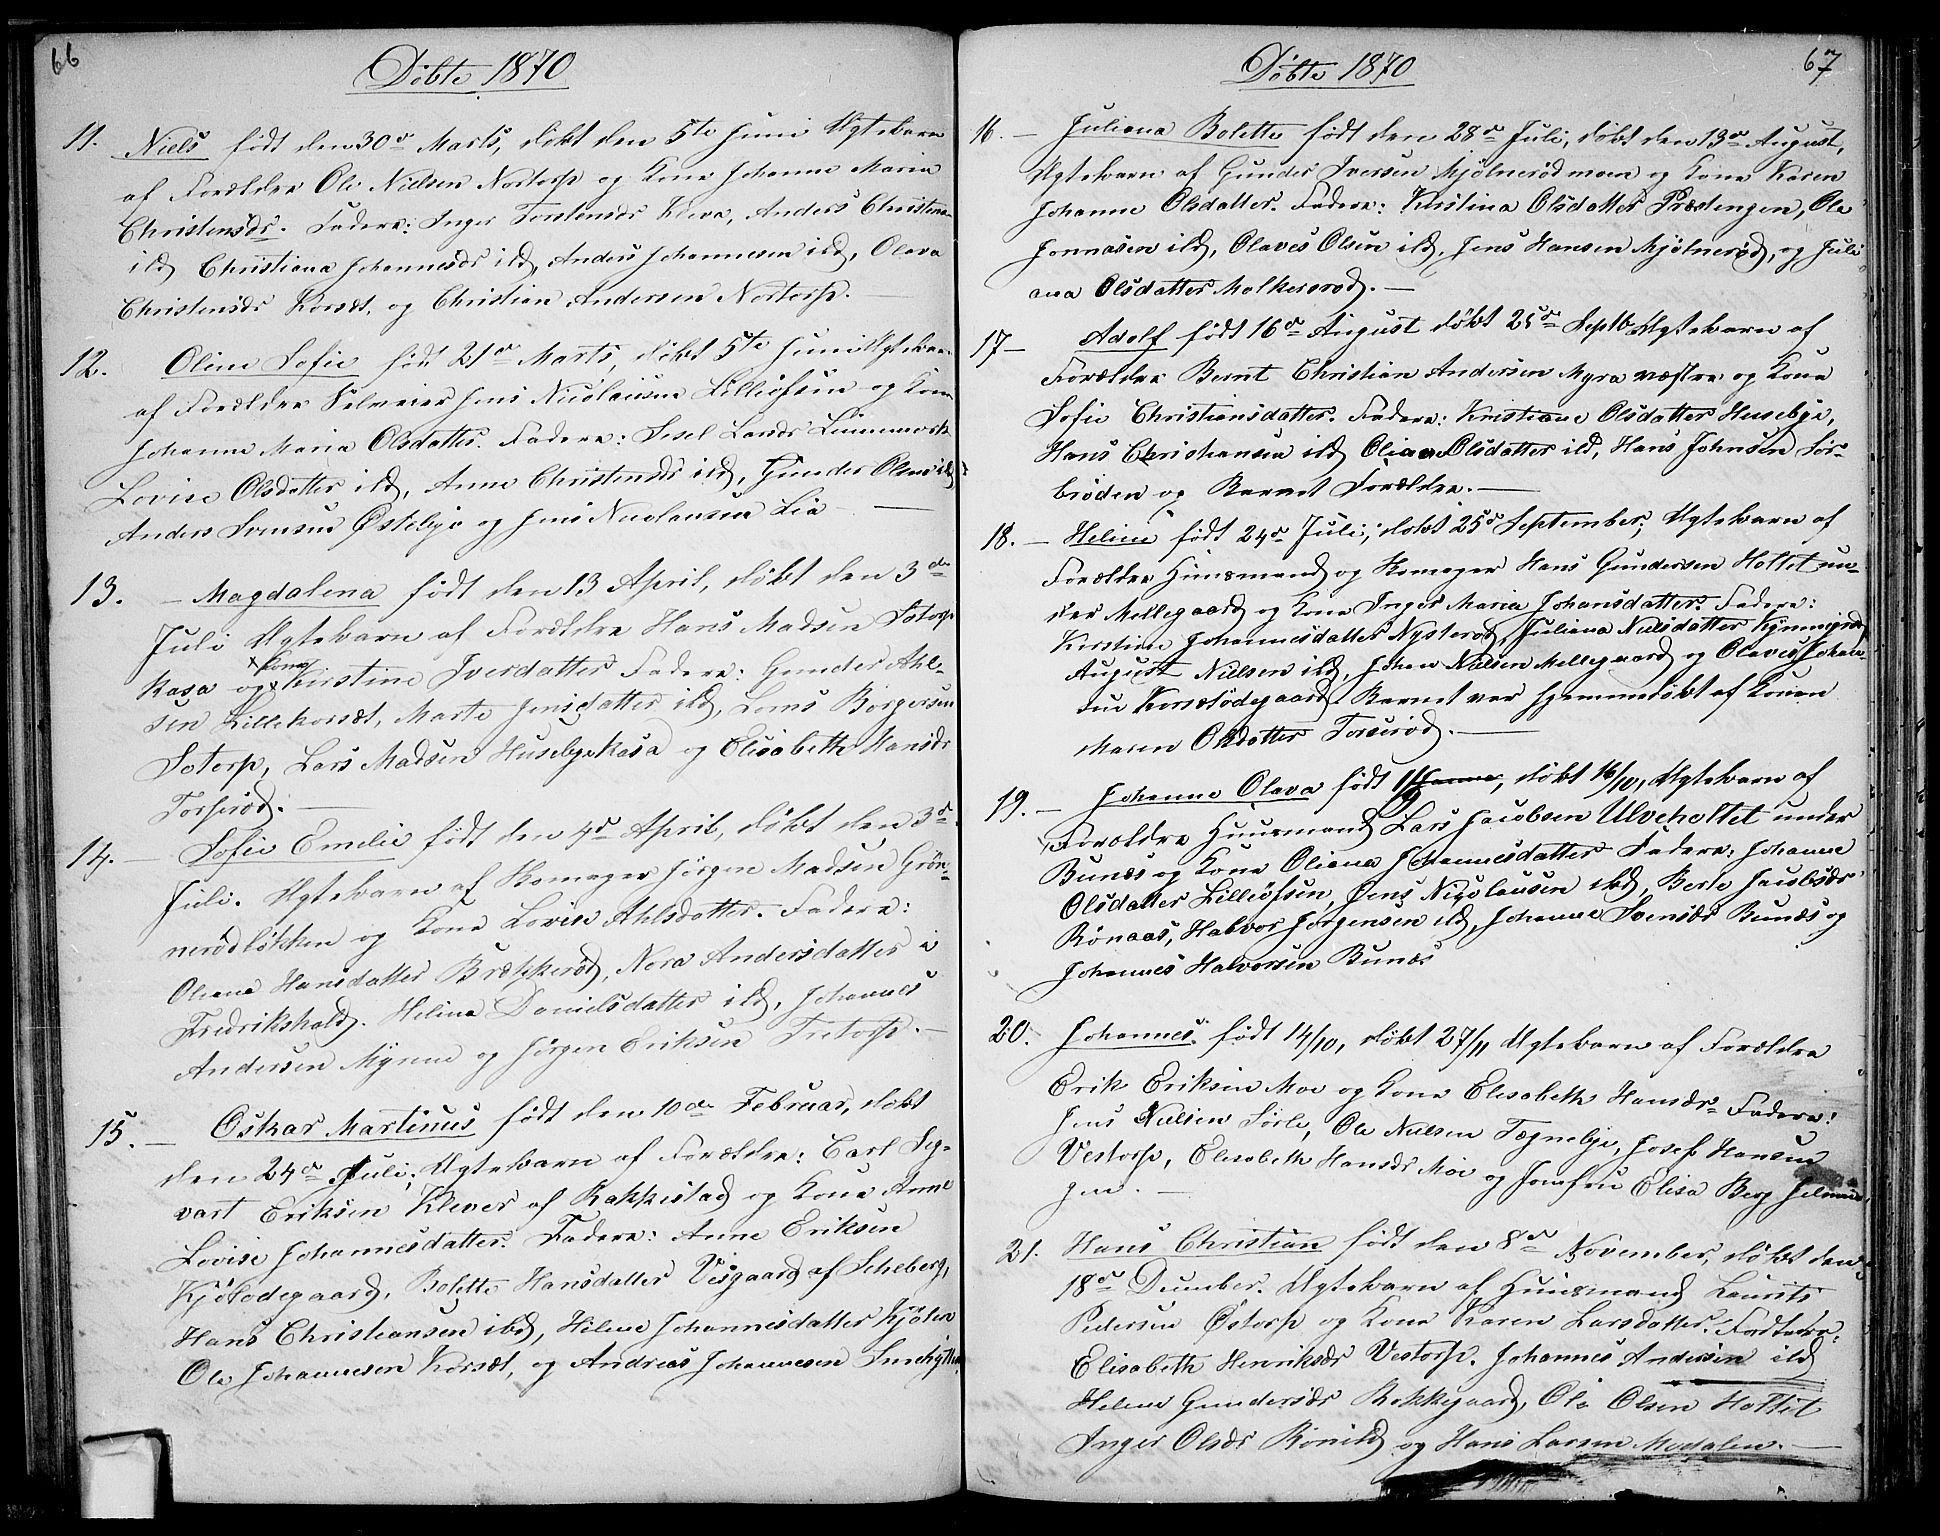 66
Döbte 1870
11. Niels født den 30te Marts, døbt den 5te Juni Ægtebarn
af Forældre Ole Nielsen Nortorp og Kone Johanne Maria
Christensdr. Faddere: Inger Torstensdr Kleva, Anders Christensen
ibd, Christiana Johannesdr ibd, Anders Johannesen ibd, Olava
Christensdr Korsæt, og Christian Andersen Nortorp. —
12. Oline Sofie født 21de Marts, døbt 5te Juni Ægtebarn
af Forældre Selveier Jens Nicolaisen Lilleöfsin og Kone
Johanne Maria Olsdatter. Faddere: Sesel Larsdr Linnemork
Lovise Olsdatter ibd, Anne Christensdr ibd, Gunder Olsen ibd
Anders Svensen Østebye og Jens Nicolausen Lia —
13. — Magdalena født den 13 April, døbt den 3de
Juli Ægtebarn af Forældre Hans Madsen Sotorp
Kasa og Kone Kirstine Iverdatter Faddere: Gunder Ahl-
sen Lillekorsæt, Marte Jensdatter ibd, Lorns Börgersen
Sotorp, Lars Madsen Husebyekasa og Elisabeth Hansdr
Torperöd. —
14. — Sofie Emelie født den 4de April, døbt den 3de
Juli. Ægtebarn af Skomager Jörgen Madsen Grön-
nerödlökken og Kone Lovise Ahlsdatter. Faddere:
Oliane Hansdatter Brækkeröd, Nora Andersdatter i
Fredrikshald. Helina Danielsdatter ibd, Johannes
Andersen Myrene og Jörgen Eriksen Tretorp. —
15. — Oskar Martinus født den 10de Februar, døbt
den 24de Juli, Ægtebarn af Forældre: Carl Sy-
vart Eriksen Klever af Rakkestad og Kone Anne
Lovise Johannesdatter. Faddere: Anne Eriksen
Kjölödegaard, Bolette Hansdatter Visgaard af Scheberg,
Hans Christiansen ibd, Helene Johannesdatter Kjölen
Ole Johannesen Korsæt, og Andreas Johannesen
67
Döbte 1870
16. — Juliana Bolette født den 28de Juli, døbt den 13de August,
Ægtebarn af Gunder Iversen Mjölnerödmoen og Kone Karen
Johanne Olsdatter. Faddere: Kristina Olsdatter Præstengen, Ole
Jonnasen ibd, Olaves Olsen ibd, Jens Hansen Mjölneröd, og Juli
ana Olsdatter Molkeröd. —
17 — Adolf født 16de August døbt 25de Septb Ægtebarn af
Forældre Bernt Christian Andersen Myra væstre og Kone
Sofie Christiansdatter. Faddere: Kristiane Olsdatter Husebye,
Hans Christiansen ibd Oliane Olsdatter ibd, Hans Johnsen Sör-
bröden og Barnet Forældre. —
18. — Heline født 24de Juli, døbt 25de September, Ægtebarn af
Forældre Huusmand og Skomager Hans Gundersen Holtet un-
der Mellegaard og Kone Inger Maria Johansdatter. Faddere:
Kirstine Johannesdatter Nysteröd, Juliana Nielsdatter
August Nielsen ibd, Johan Nielsen Mellegaard og Olaves Johan-
sen Korsetödegaard Barnet var hjemmedöbt af Konen
Maren Olsdatter Torperöd. —
19. — Johanne Olava født 11/9, døbt 16/10, Ægtebarn af
Forældre Huusmand Lars Jacobsen Ulveholtet under
Bunæs og Kone Oliana Johannesdatter Faddere: Johanne
Olsdatter Lilleöfsen, Jens Nicolausen ibd, Berte Jacobsdr
Rönaas, Halvor Jörgensen ibd, Johanne Svensdr Bunæs og
Johannes Halvorsen Bunæs
20. Johannes født 14/10, døbt 27/11 Ægtebarn af Forældre
Erik Eriksen Moe og Kone Elisabeth Hansdr Faddere:
Jens Nielsen Sörle, Ole Nielsen Tægnebye, Josef Hansen
Vestorp, Elisabeth Hansdr Moe og Jomfru Elisa Berg
gen. —
21. Hans Christian født den 8de November, døbt den
18de December. Ægtebarn af Huusmand Laurits
Pedersen Östorp og Kone Karen Larsdatter.
Elisabeth Henriksdr Vestorp. Johannes Andersen ibd
Helene Gundersdr Bakkegaard, Ole Olsen Holtet
Inger Olsdr og Hans Larsen Mydalen. —